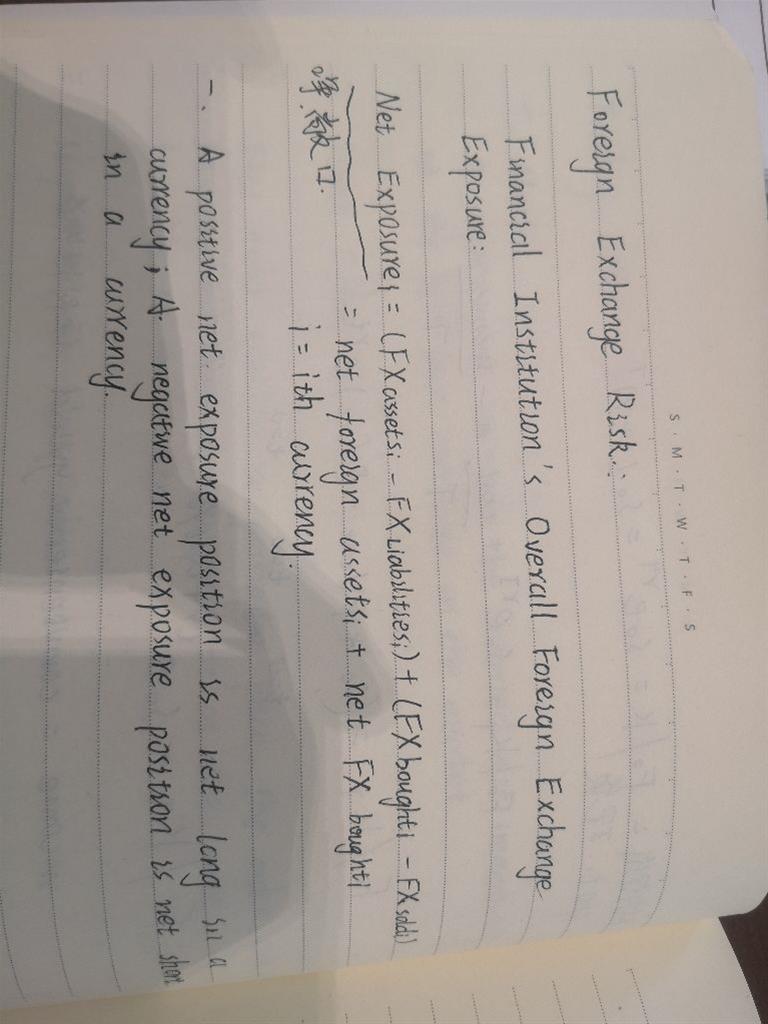 S · M · T · W · T · F · S
Foreign Exchange Risk:
Financial Institution's Overall Foreign Exchange
Exposure:
Net Exposureᵢ = (FX assetsᵢ - FX Liabilitiesᵢ) + (FX boughtᵢ - FX soldᵢ)
净敞口. = net foreign assetsᵢ + net FX boughtᵢ
i = ith currency.
一. A positive net exposure position is net long in a
currency; A negative net exposure position is net short
in a currency.